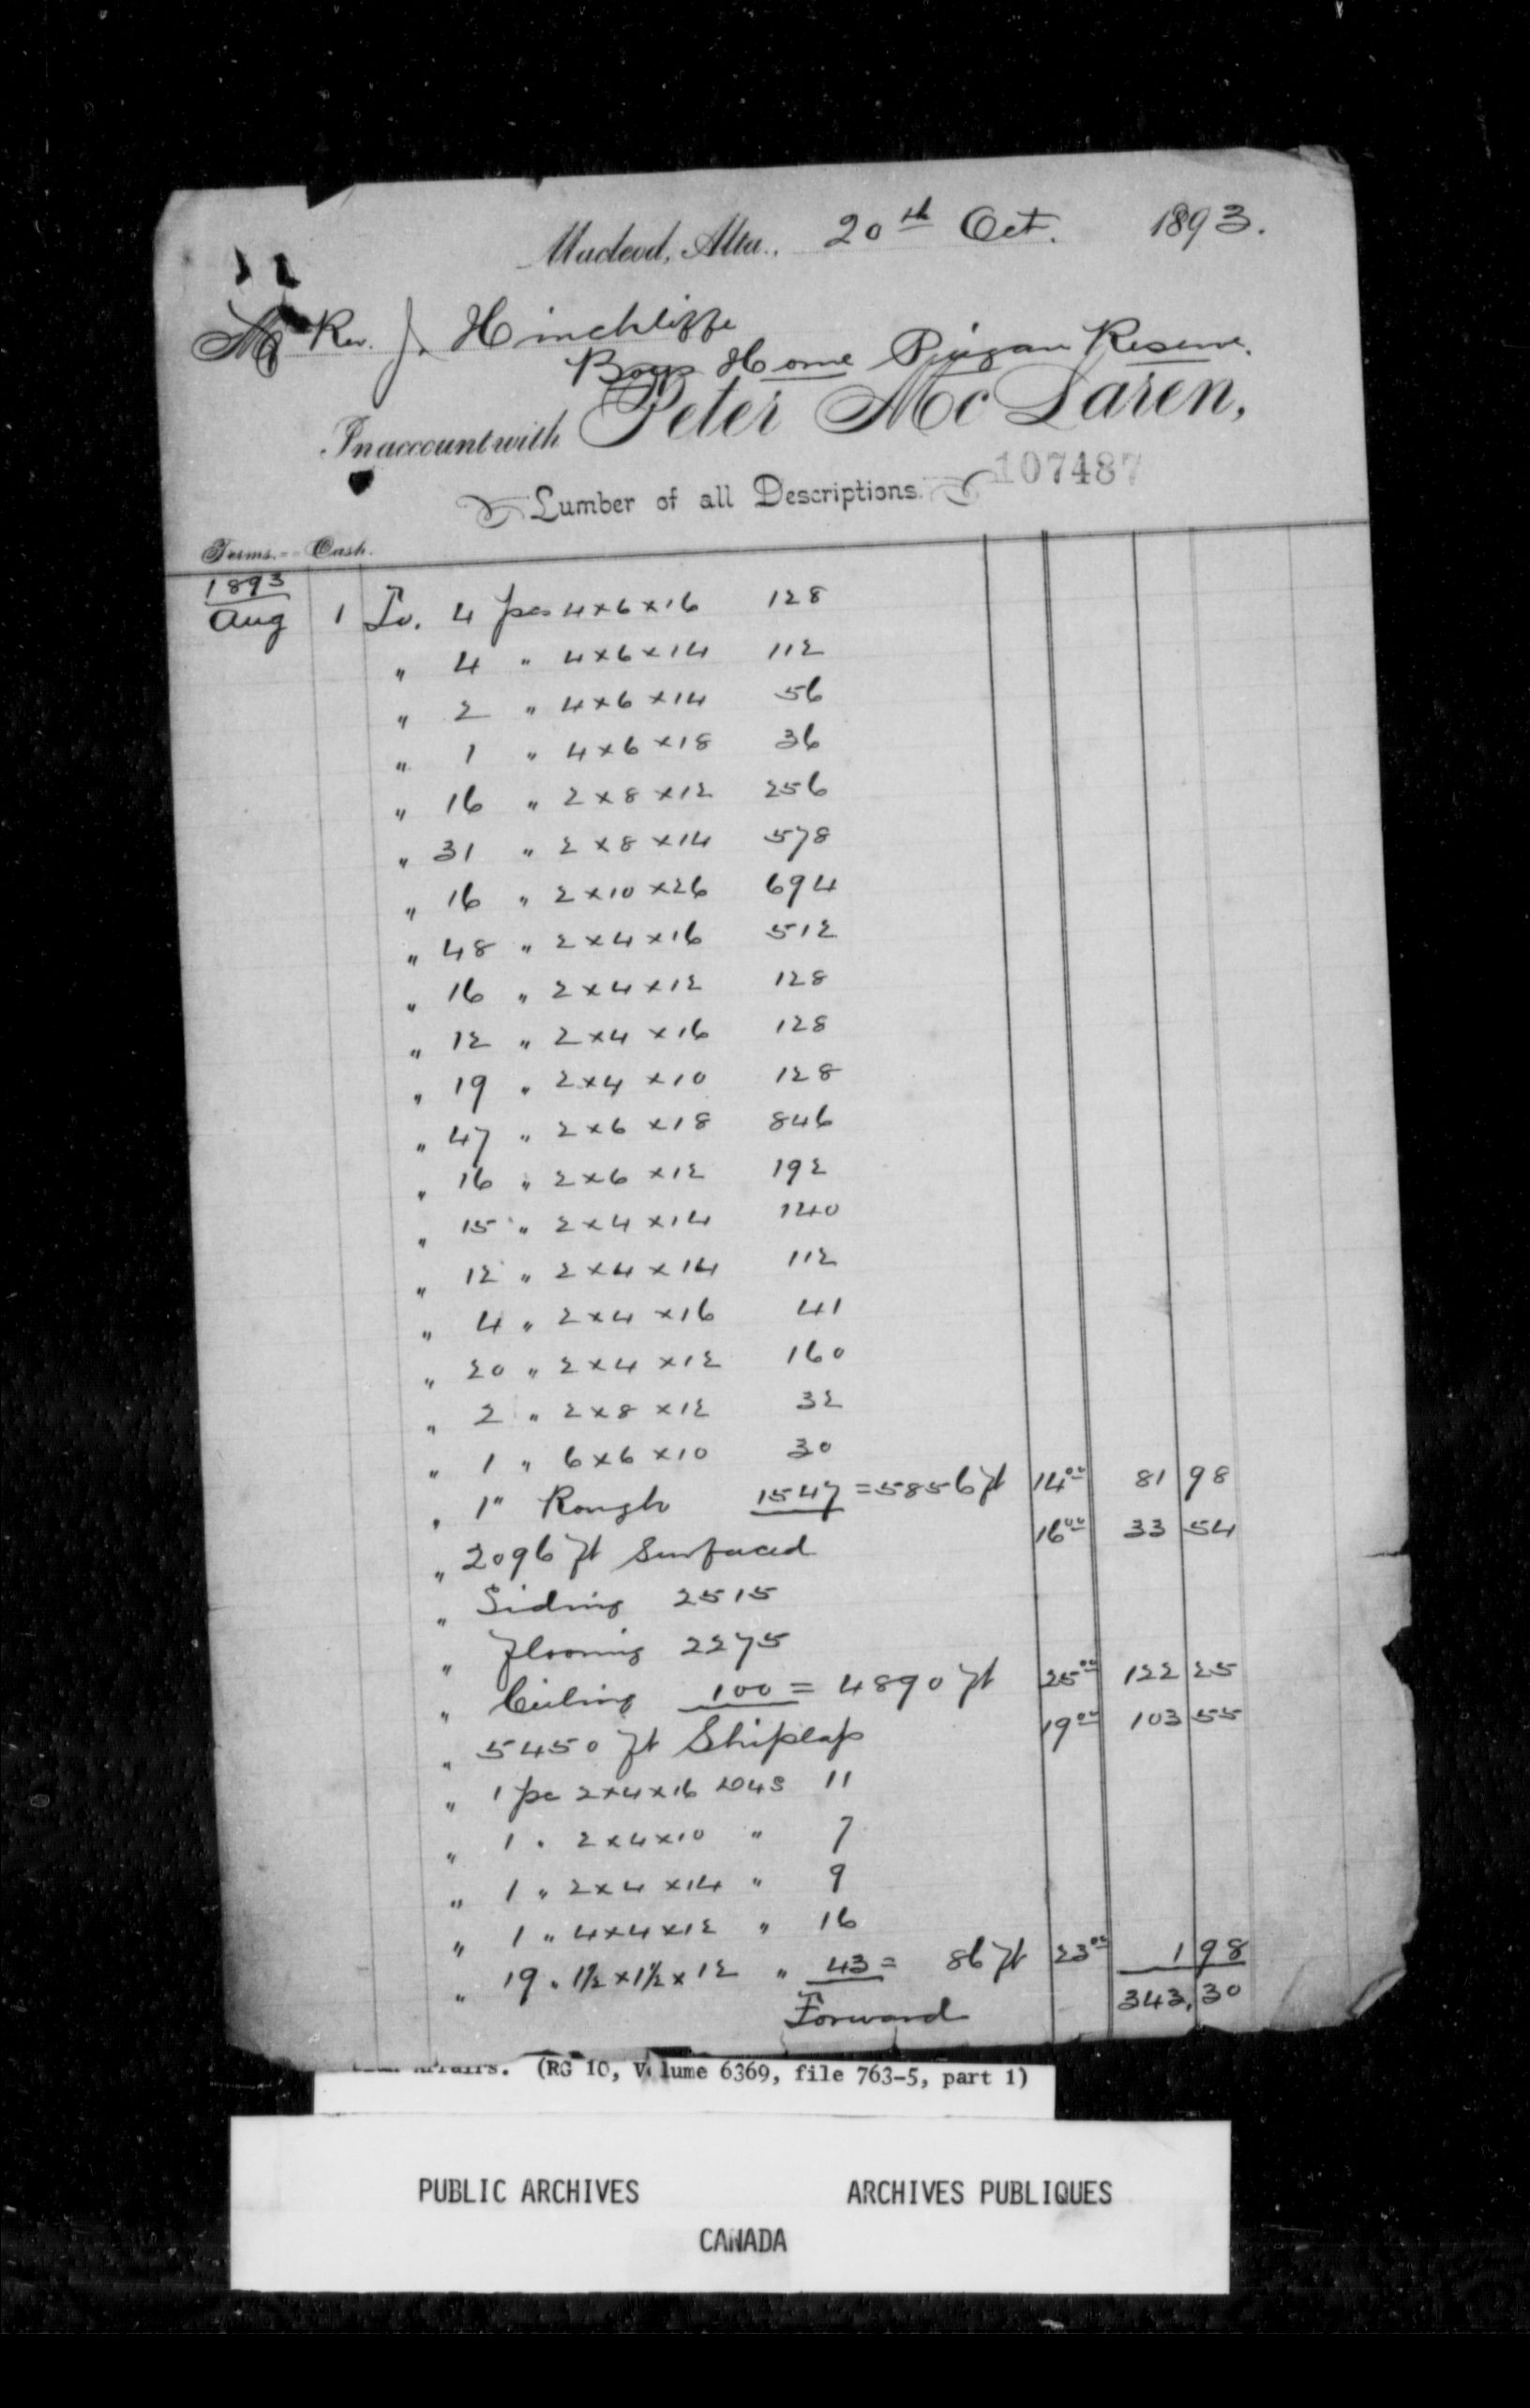 Macleod, Alta., 20th Oct. 1893.
M Rev. J. Hinchliffe
Boys Home Peigan Reserve.
In account with Peter McLaren,
107487
Lumber of all Descriptions.
Terms. - Cash.
1893
Aug 1 To. 4 pcs 4x6x16 128
" 4 " 4x6x14 112
" 2 " 4x6x14 56
" 1 " 4x6x18 36
" 16 " 2x8x12 256
" 31 " 2x8x14 578
" 16 " 2x10x26 694
" 48 " 2x4x16 512
" 16 " 2x4x12 128
" 12 " 2x4x16 128
" 19 " 2x4x10 128
" 47 " 2x6x18 846
" 16 " 2x6x12 192
" 15 " 2x4x14 140
" 12 " 2x4x14 112
" 4 " 2x4x16 41
" 20 " 2x4x12 160
" 2 " 2x8x12 32
" 1 " 6x6x10 30
" 1" Rough 1547 = 5856 ft 14.00 81 98
" 2096 ft Surfaced 16.00 33 54
" Siding 2515
" Flooring 2275
" Ceiling 100 = 4890 ft 25.00 122 25
" 5450 ft Shiplap 19.00 103 55
" 1 pc 2x4x16 D4S 11
" 1 " 2x4x10 " 7
" 1 " 2x4x14 " 9
" 1 " 4x4x12 " 16
" 19 " 1½x1½x12 " 43 = 86 ft 23.00 1 98
Forward 343.30
Affairs. (RG 10, Volume 6369, file 763-5, part 1)
PUBLIC ARCHIVES ARCHIVES PUBLIQUES
CANADA